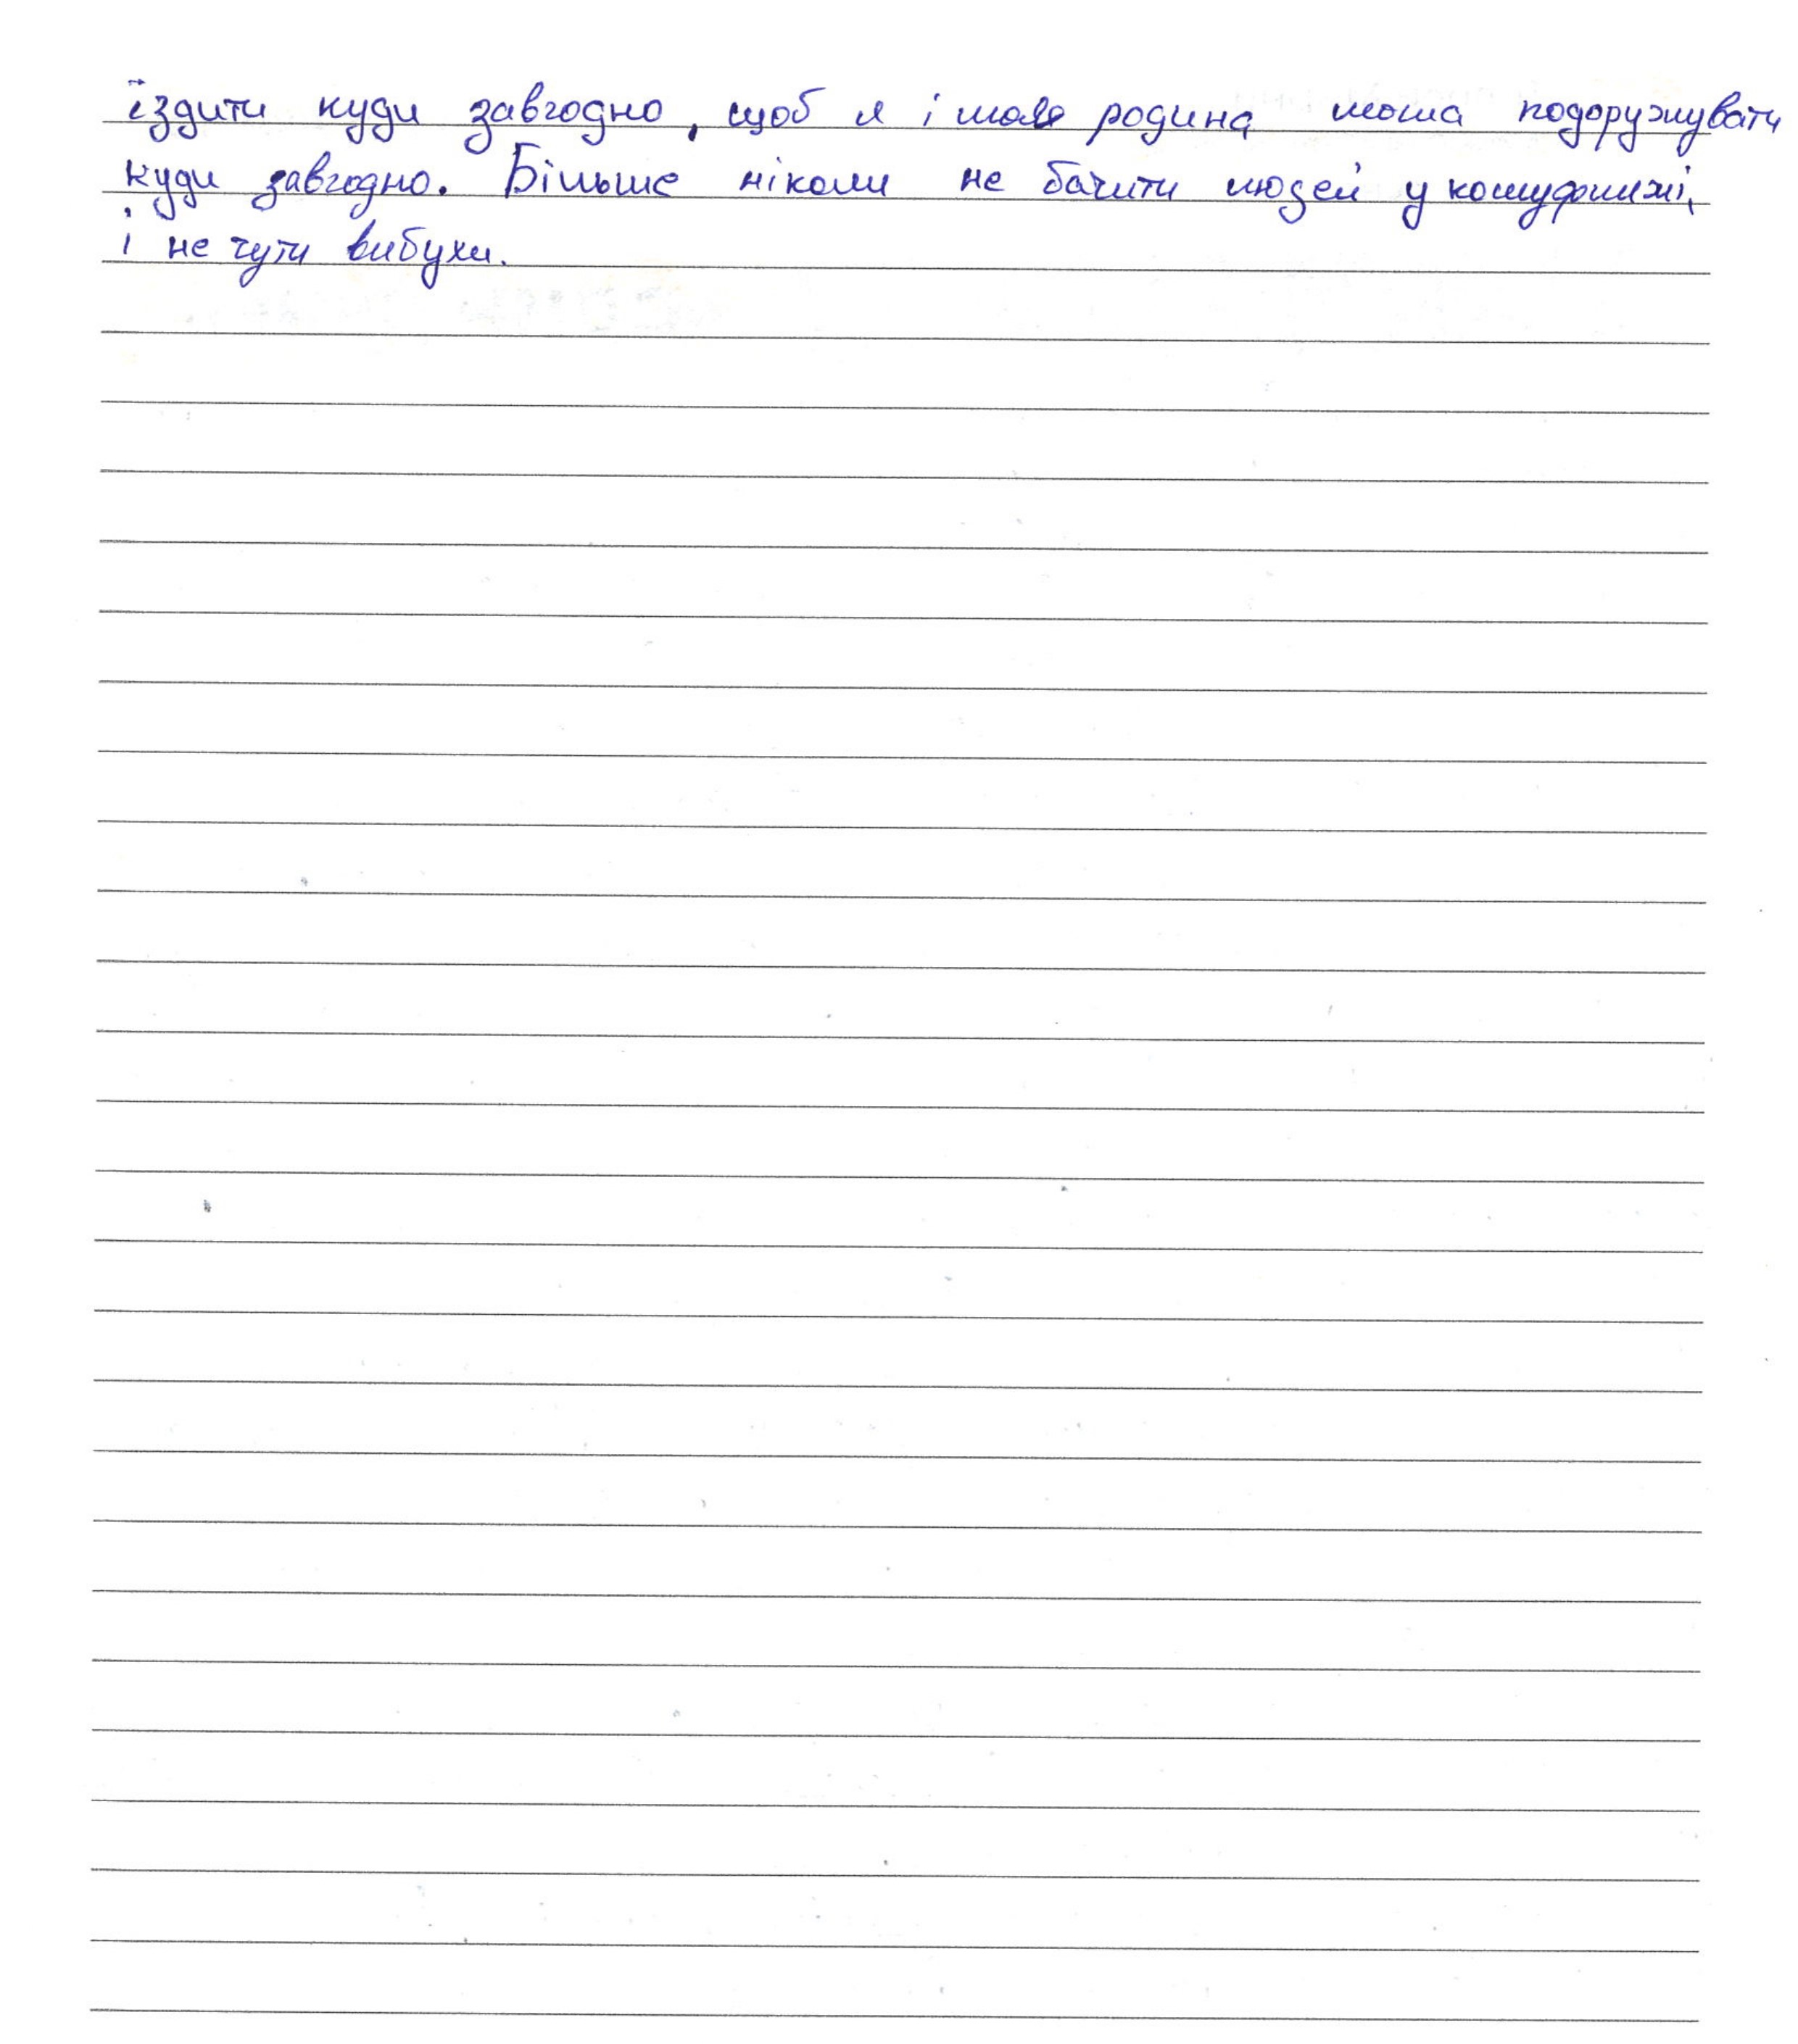 їздити куди завгодно, щоб я і моя родина могла подоружувати
куди завгодно. Більше ніколи не бачити людей у комуфляжі,
і не чути вибухи.